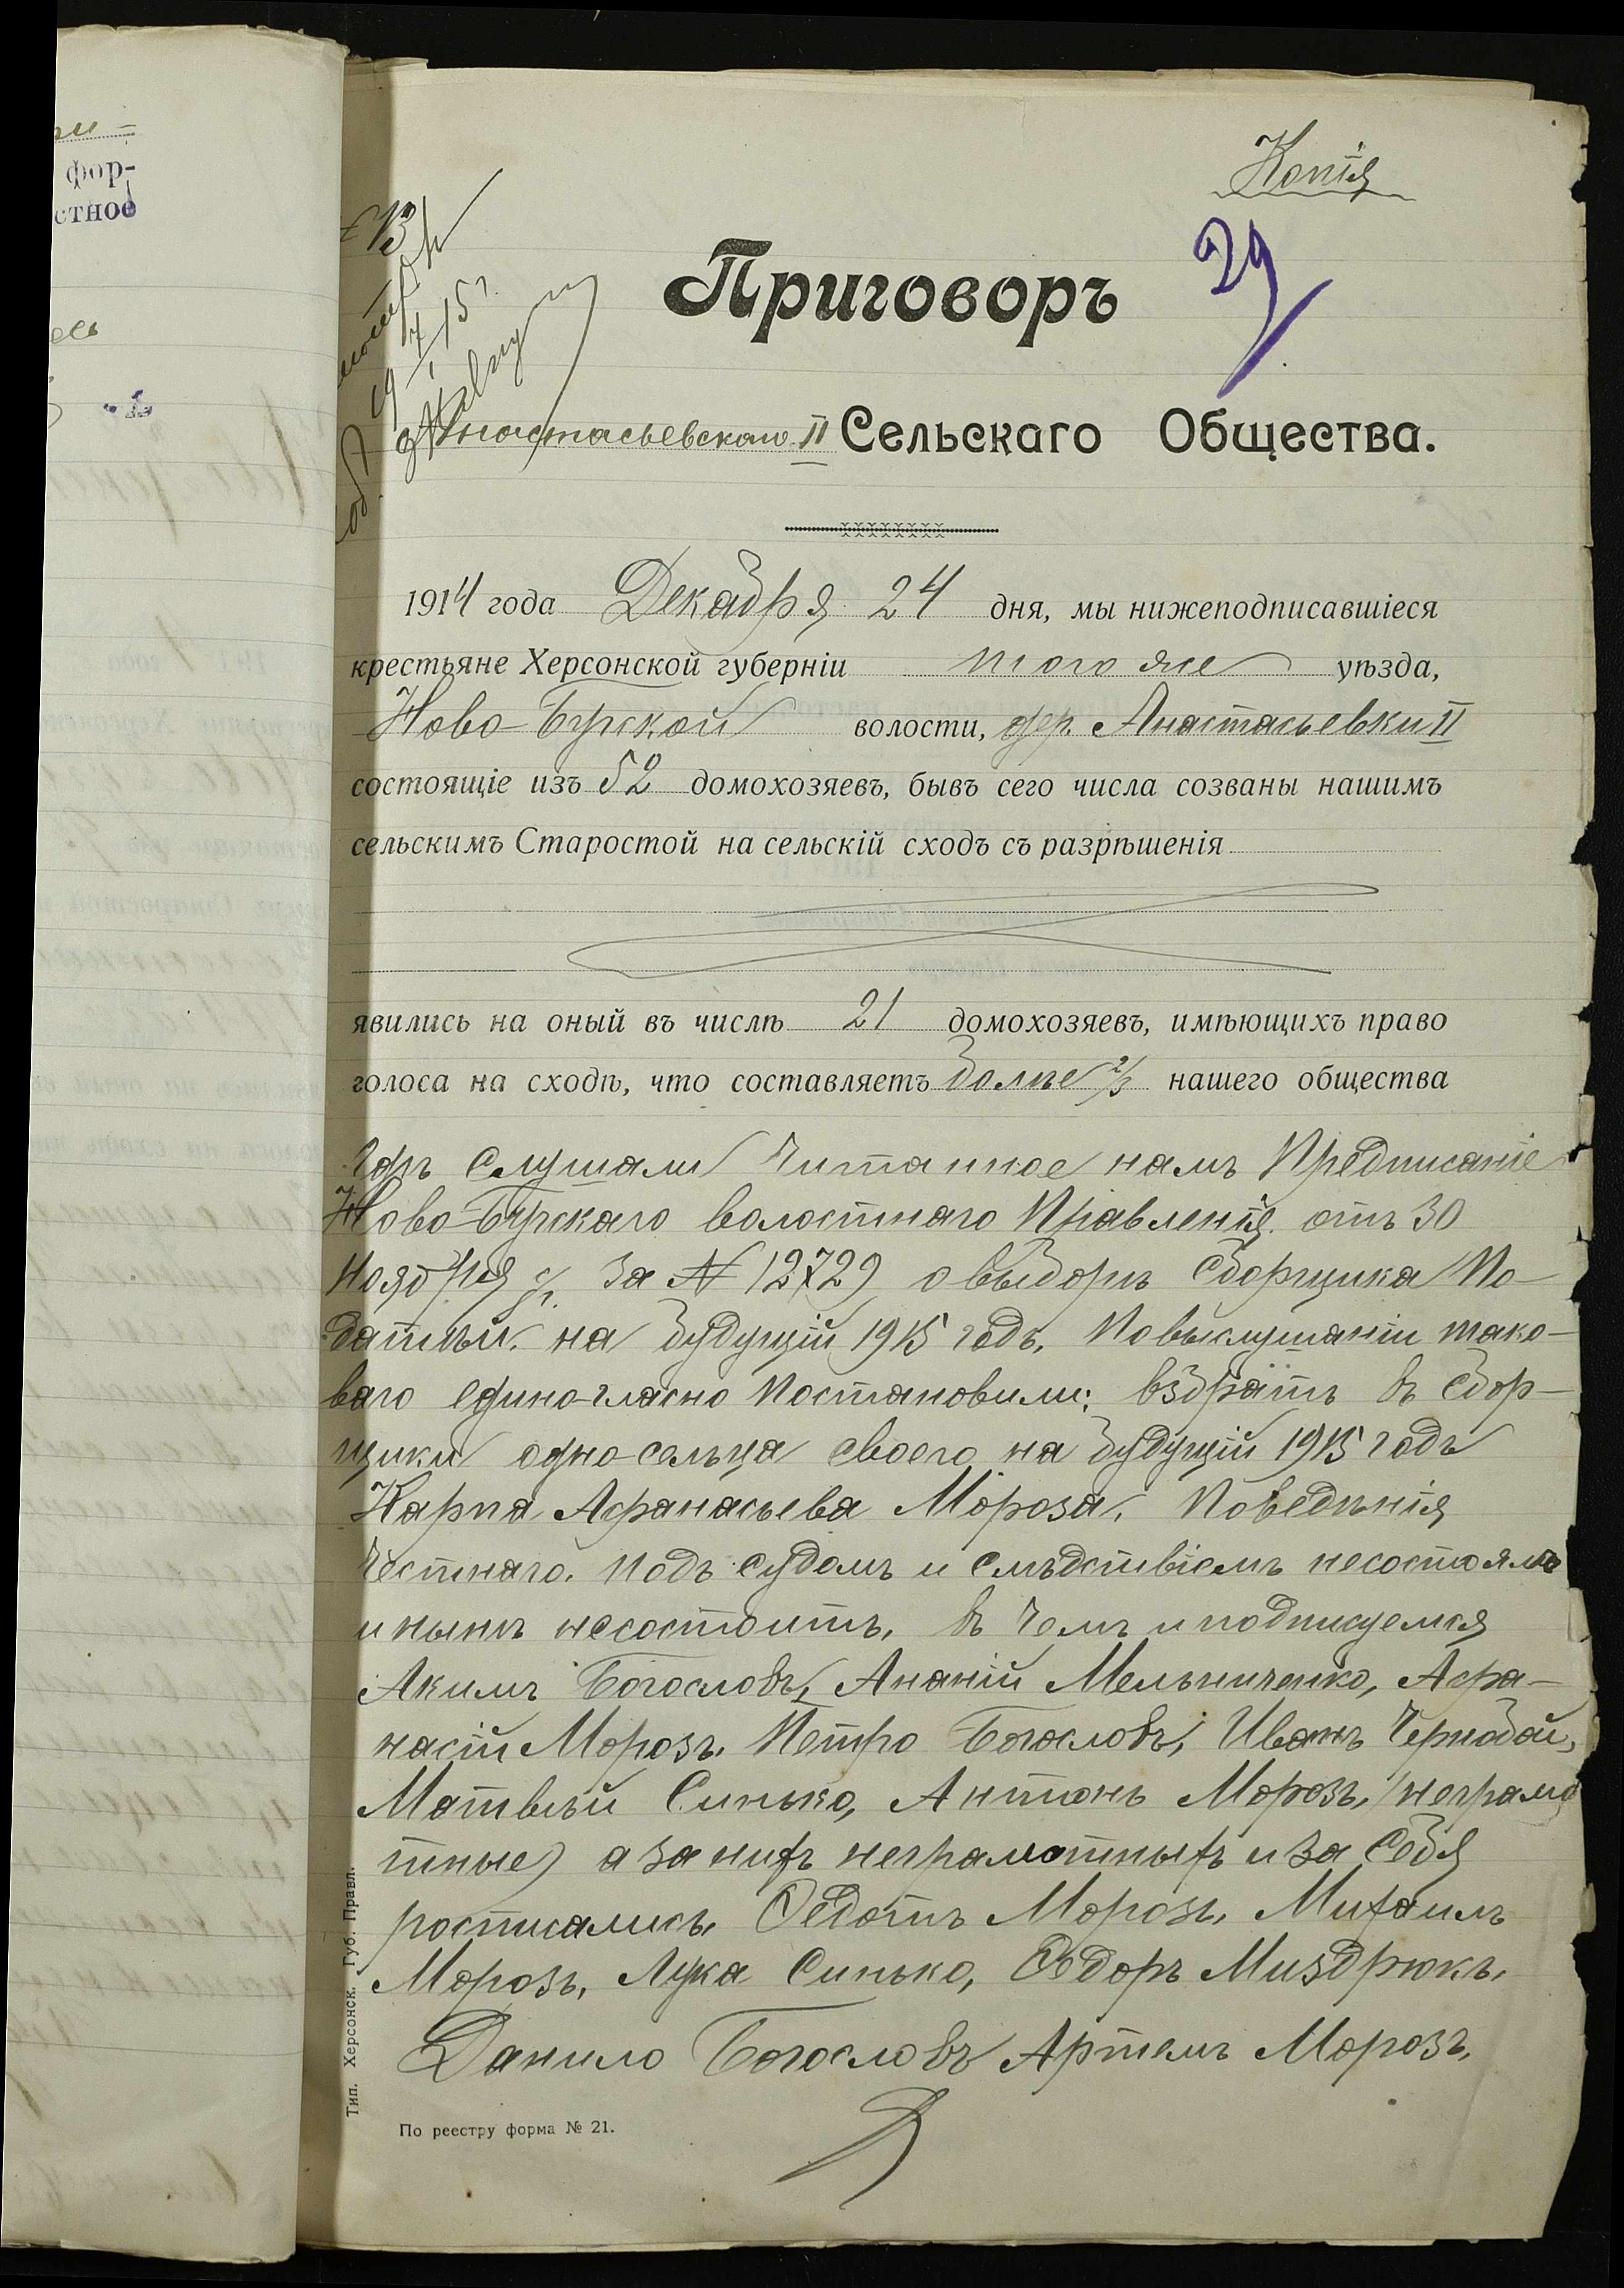 Копія
29
Приговоръ
Анастасьевскаго II Сельскаго Общества.
1914 года Декабря 24 дня, мы нижеподписавшіеся
крестьяне Херсонской губерніи того же уѣзда,
Ново-Бугской волости, дер. Анастасьевки II
состоящіе изъ 52 домохозяевъ, бывъ сего числа созваны нашимъ
сельскимъ Старостой на сельскій сходъ съ разрѣшенія
явились на оный въ числѣ 21 домохозяевъ, имѣющихъ право
голоса на сходѣ, что составляетъ болѣе 2/3 нашего общества
гдѣ слушали читанное намъ Предписаніе
Ново-Бугскаго волостнаго Правленія отъ 30
Ноября с/г. за № 12729 о выборѣ сборщика По-
датѣй. на будущій 1915 годъ. По выслушаніи тако-
ваго едино-гласно постановили: взбрать въ сбор-
щики одно-сельца своего на будущій 1915 годъ
Карпа Афанасьева Мороза. Поведѣнія
честнаго. Подъ судомъ и слѣдствіемъ несостоялъ
и нынѣ несостоитъ, въ чемъ и подписуемся
Акимъ Богословъ, Ананій Мельниченко, Афа-
насій Морозъ. Петро Богословъ, Иванъ Чернобай,
Матвѣй Синько, Антонъ Морозъ, (неграмо
тные) а за нихъ неграмотныхъ и за себя
росписались Федотъ Морозъ, Михаилъ
Морозъ, Лука Синько, Федоръ Миздрюкъ,
Данило Богословъ Артемъ Морозъ.
По реестру форма № 21.
Тип. Херсонск. Губ. Правл.
фор-
стное